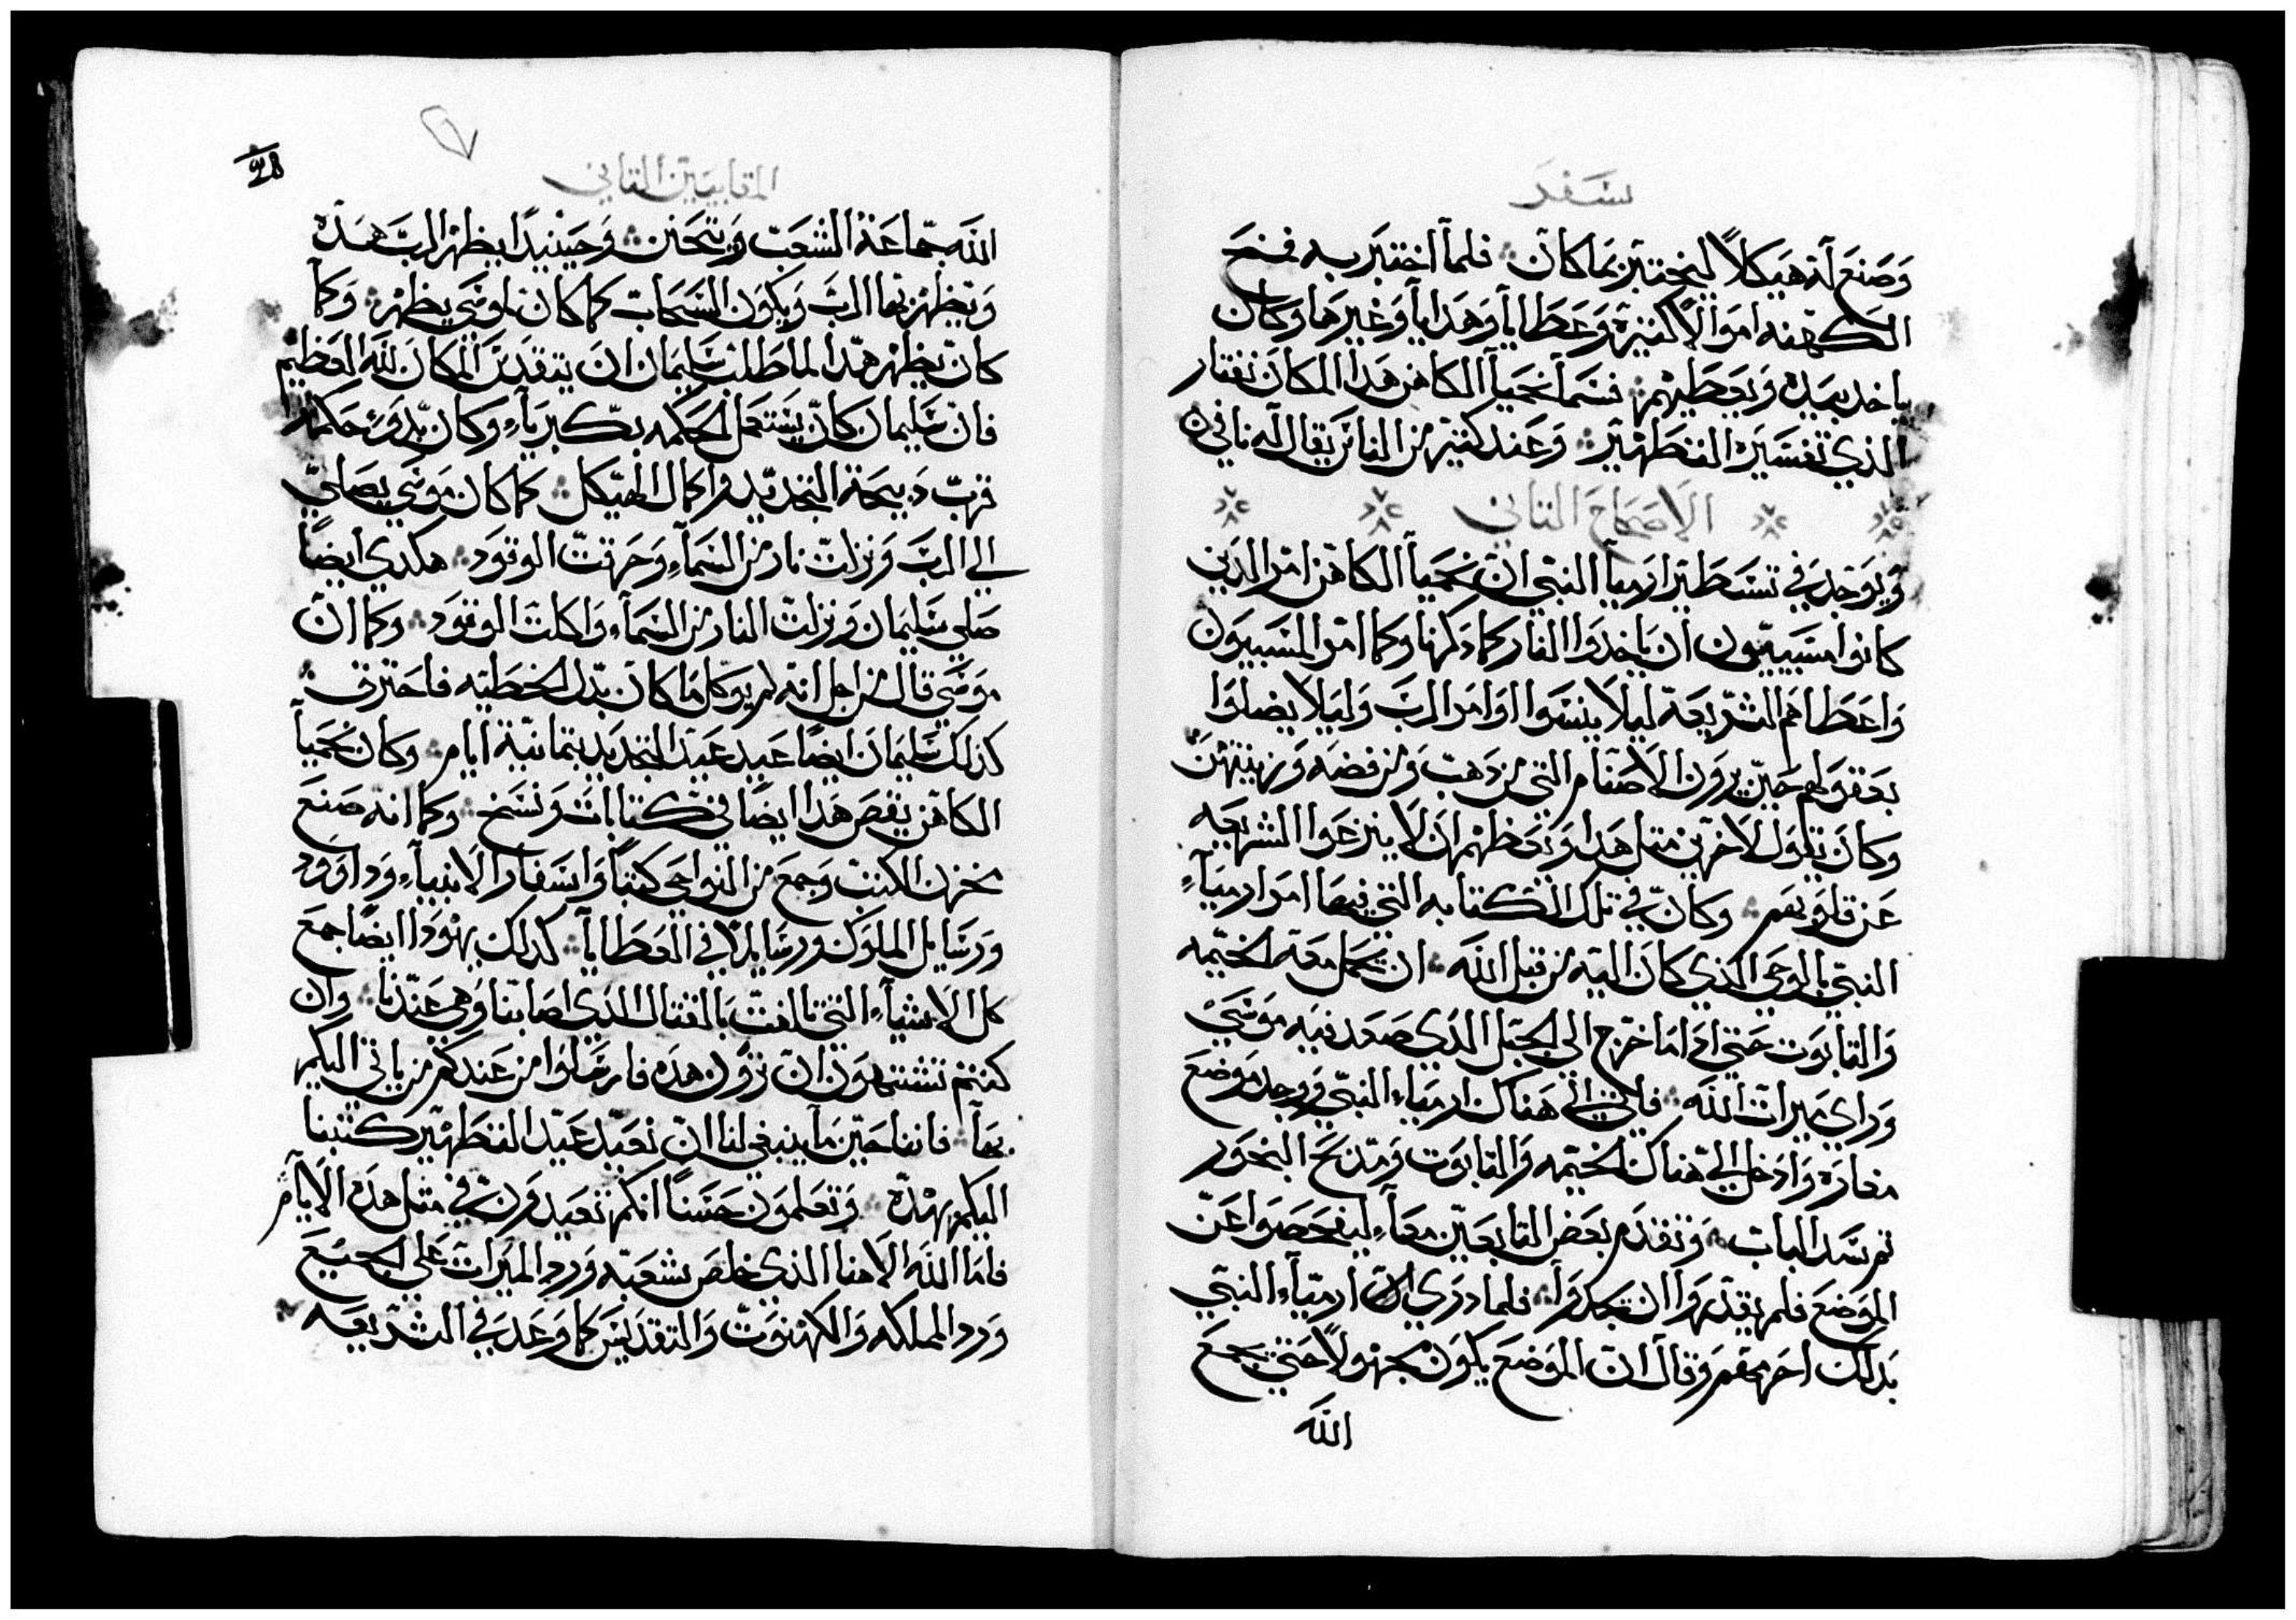 سفر
وصنع له هيكلاً ليختبر بما كان فلما اختبر به فنح
الكهنه اموالاً كثيرة وعطايا وهدايا وغيرها وكان
ياخد بيده ويعطيهم فسما نحميا الكاهن هدا المكان نفتار
الذي تفسيره التطهير وعند كثير من الناس يقال له نافي
الاصحاح التاني
ويوجد في تسطير ارميا النبي ان نحميا الكاهن امر الدين
كانوا مسبيون ان ياخدوا النار كما دكرنا وكما امر المسبيون
واعطاهم الشريعة ليلا ينسوا اوامر الرب وليلا يضلوا
بعقولهم حين يرون الاصنام التي من دهب ومن فضه وزينتهن
وكان يقول لاخرين متل هدا وتعظهم ان لا ينزعوا الشريعه
عن قلوبهم وكان في تلك الكتابه التي فيها امر ارمياء
النبي بالوحي الذي كان اليه من قبل الله ان تحمل معه الخيمه
والتابوت حتي ادا ما خرج الي الجبل الدي صعد فيه موسي
وراي ميرات الله فلما اتي هناك ارمياء النبي ووجد موضع
مغاره وادخل الي هناك الخيمه والتابوت ومدبح البخور
تم سد الباب وتقدم بعض التابعين معاً ليفحصوا عن
الموضع فلم يقدروا ان تجدوا فلما دري الان ارمياء النبي
بدلك احرمهم وقال ان الموضع يكون مجهولاً حتي يجمع
الله
المقابيين التاني
28
الله جماعة الشعب ويتحنن وحينيدا يظهر الرب هده
وتظهر بها الرب ويكون السحاب كما كان لموسي يظهر وكما
كان يظهر هدا لما طلب سليمان ان يتقدس المكان لله العظيم
فان سليمان كان يستعمل الحكمه بكبرياء وكان بدو حكمه
قرب دبيحة التجديد واكمال الهيكل كما كان موسي يصلي
الي الرب ونزلت نار من السماء وحرقت الوقود هكدي ايضاً
صلي سليمان ونزلت النار من السماء واكلت الوقود وكما ان
موسي قال من اجل انه لم يوكل ما كان بدل الخطيه فاحترق
كذلك سليمان ايضاً عيد عيد التجديد بتمانية ايام وكان نحميا
الكاهن يقص هدا ايضاً في كتابات ونسخ وكما انه صنع
مخزن الكتب وجمع من النواحي كتباً واسفار الانبياء وداوود
ورسايل الملوك ورسايلاً في العطايا كدلك يهودا ايضاً جمع
كل الاشياء التي تلفت بالقتال الدي اصابنا وهي عندنا وان
كنتم تشتهون ان ترون هده فارسلوا من عندكم من ياتي اليكم
بها فاننا حين ما ينبغي لنا ان نعيد عيد التطهير كتبنا
اليكم بهده وتعلمون حسناً انكم تعيدون في متل هده الايام
فاما الله الاهنا الذي خلص شعبه ورد الميرات علي الجميع
ورد المملكه والكهنوت والتقديس كما وعد في الشريعه